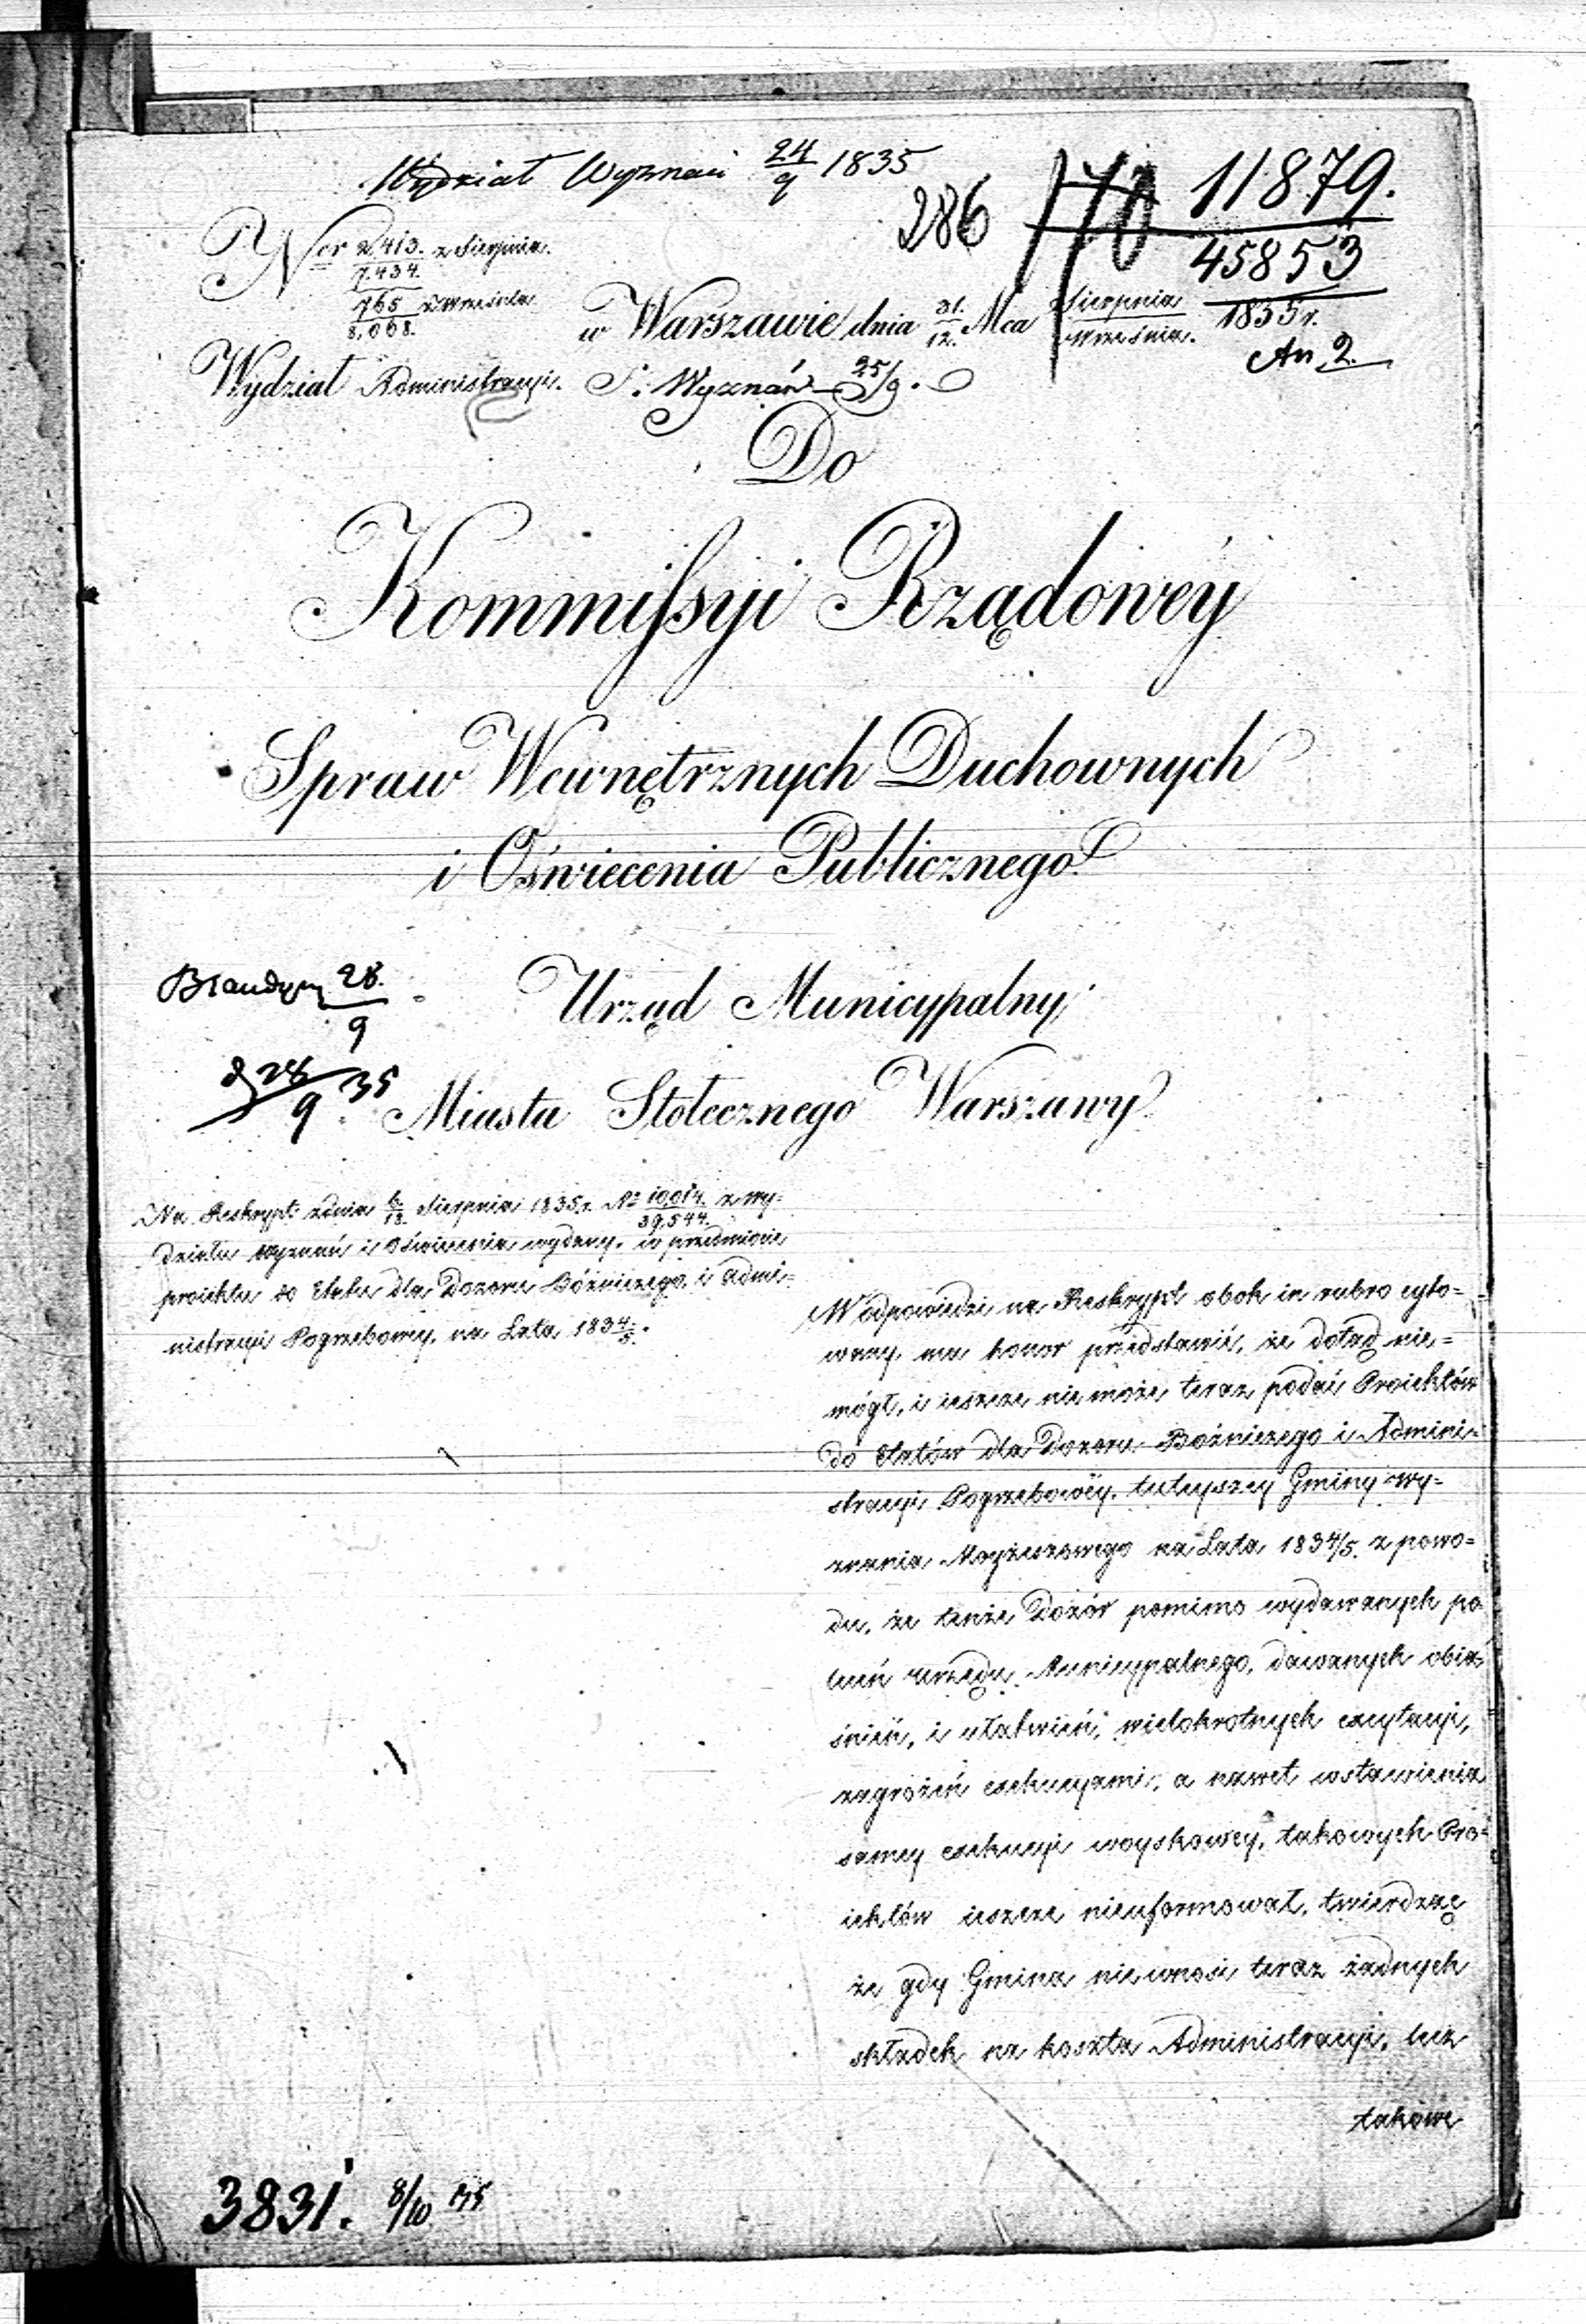 Wydział Wyznań 24/9 1835
286 170 11879.
45853
Ner 2,413. z Sierpnia.
7,434.
765 z Września
8,068.
w Warszawie dnia 31./12. Mca Sierpnia/Września. 1835 r.
An 2.
Wydział Administracyi. S: Wyznań 25/9.
Do
Kommissyi Rządowéy
Spraw Wewnętrznych Duchownych
i Oświecenia Publicznego.
28./9
Urząd Municypalny
28/9 35
Miasta Stołecznego Warszawy
Na Reskrypt zdnia 6/18. Sierpnia 1835 r. No 10,014./39,544. z wy=
działu Wyznań i Oświecenia wydany, w przedmiocie
proiektu do Etatu dla Dozoru Bóżniczego, i Admi=
nistracyi Pogrzebowey, na Lata 1834/5.
W odpowiedzi na Reskrypt obok in rubro cyto=
wany, ma honor przedstawić, że dotąd nie=
mógł, i ieszcze nie może teraz podać Proiektów
do Etatów dla Dozoru Bóżniczego i Admini=
stracyi Pogrzebowéy, tuteyszey Gminy wy=
znania Moyżeszowego na Lata 1834/5. z powo=
du, że tenże Dozór pomimo wydawanych po
leceń Urzędu Municypalnego, dawanych obia
śnień, i ułatwień, wielokrotnych excytacyi,
zagrożeń exekucyami, a nawet wstawienia
samey exekucyi woyskowey, takowych Pro=
iektów ieszcze nieuformował, twierdząc
że gdy Gmina niewnosi teraz żadnych
składek na koszta Administracyi, lecz
takowe
3831. 8/10 35